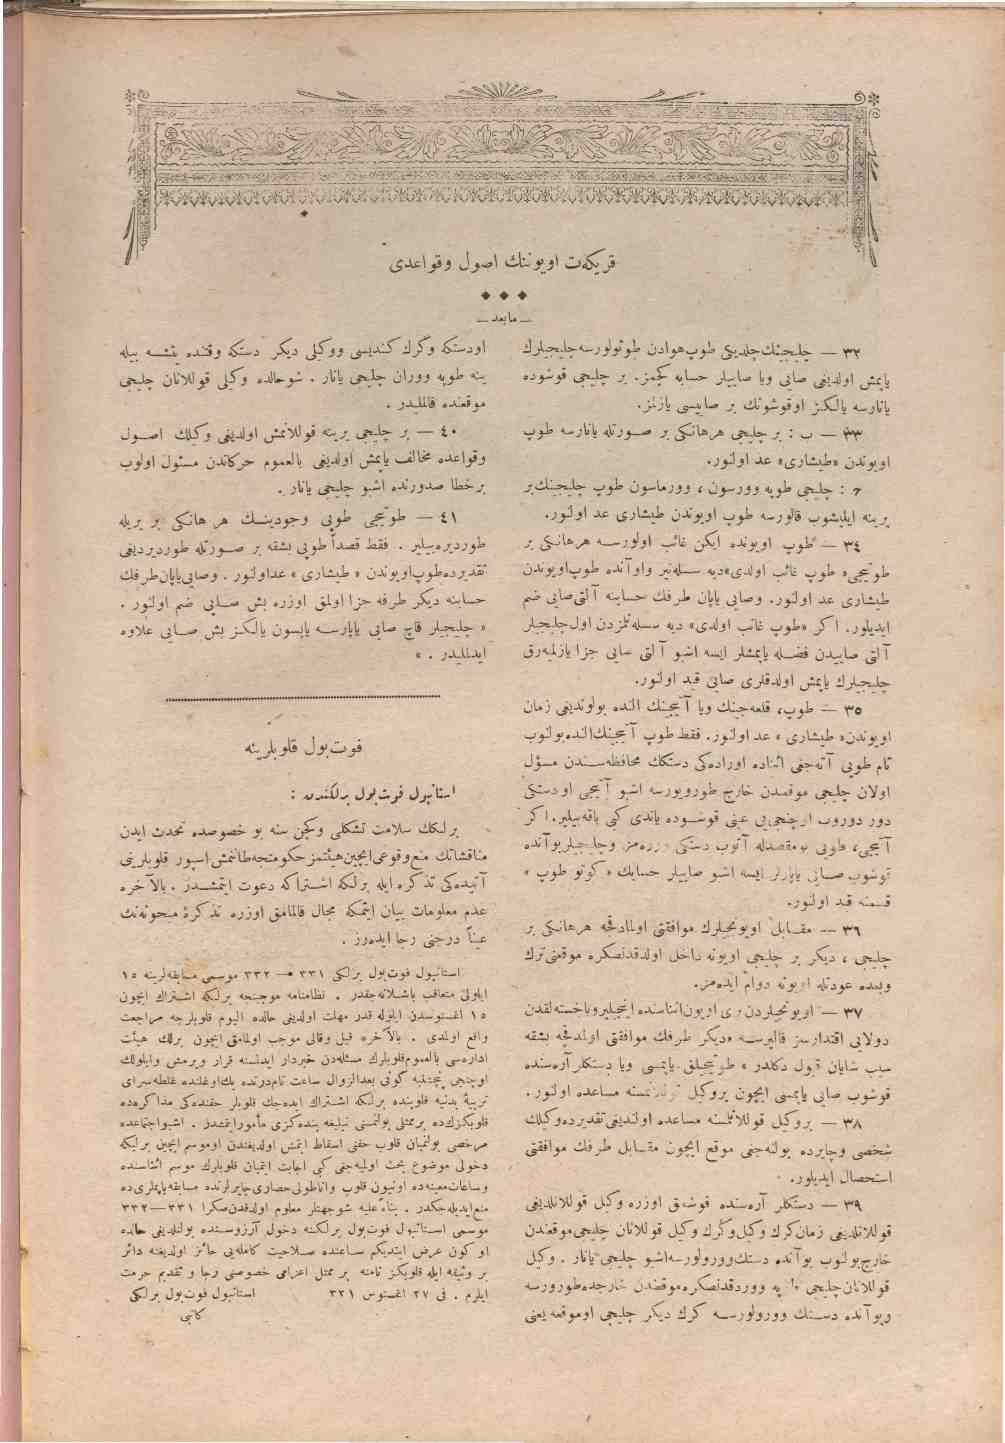 قریكه‌ت اویوننك اصول وقواعدی
— مابعد —
٣٢ — چلیجینك چلدیكی طوپ هوادن طوتولورسه چلیجیلرك
یاپمش اولدیغی صایی ویا صاییلر حسابه كچمز. بر چلیجی قوشوده
یانارسه یالكز اوقوشونك بر صاییسی یازلمز.
٣٣ — ب : بر چلیجی هرهانكی بر صورتله یانارسه طوپ
اویوندن «طیشاری» عد اولنور.
: چلیجی طوپه وورسون ، وورماسون طوپ چلیجینك بر
یرینه ایلیشوب قالورسه طوپ اویوندن طیشاری عد اولنور.
٣٤ — طوپ اویونده ایكن غائب اولورسه هرهانكی بر
طوتیجی « طوپ غائب اولدی» دیه سسله‌نیر واوآنده طوپ اویوندن
طیشاری عد اولنور. وصایی یاپان طرفك حسابنه آلتی صایی ضم
ایدیلور. اكر «طوپ غائب اولدی» دیه سسله‌نمزدن اول چلیجیلر
آلتی صاییدن فضله یاپمشلر ایسه اشبو آلتی صایی جزا یازلمیه‌رق
چلیجیلرك یاپمش اولدقلری صایی قید اولنور.
٣٥ — طوپ، قلعه‌جینك ویا آتیجینك النده بولوندیغی زمان
اویوندن« طیشاری » عد اولنور. فقط طوپ آتیجینك النده بولنوب
تام طوپی آته‌جغی اثناده اوراده‌كی دستكك محافظه‌سندن مسؤل
اولان چلیجی موقعندن خارج طورویورسه اشبو آتیجی او دستكی
آتیجی، طوپی بومقصدله آتوب دستكی وچلیجیلر بوآنده
قوشوب صایی یاپارلر ایسه اشبو صاییلر حسابك « كوتو طوپ »
قسمنه قید اولنور.
٣٦ — مقابل اویونجیلرك موافقتی اولمادقجه هرهانكی بر
چلیجی ، دیكر بر چلیجی اویونه داخل اولدقدنصكره موقعنی ترك
ویینه عودتله اویونه دوام ایده‌مز.
٣٧ — اویونجیلردن بری اویون اثناسنده اینجیلیر ویا خسته‌لقدن
دولایی اقتدارسز قالیرسه «دیكر طرفك موافقتی اولمدقجه بشقه
سبب شایان قبول دكلدر » طوتیجیلق یاپمسی ویا دستكلر آره‌سنده
قوشوب صایی یاپمسی ایچون بروكیل مساعده اولنور.
٣٨ — بروكیل قوللانلمسنه مساعده اولندیغی تقدیرده وكیلك
شخصی وچایرده بولنه‌جغی موقع ایچون مقابل طرفك موافقتی
استحصال ایدیلور.
٣٩ — دستكلر آره‌سنده قوشمق اوزره وكیل قوللانلدیغی
قوللانلدیغی زمان كرك وكیل وكرك وكیل قوللانان چلیجی موقعندن
خارج بولنوب بوآنده دستك وورولورسه اشبو چلیجی یانار . وكیل
قوللانان چلیجی طوپه ووردقدنصكره موقعندن خارجده طورورسه
وبوآنده دستك وورولورسه كرك دیكر چلیجی اوموقعه یعنی
اودستكه وكرك كندیسی ووكیلی دیكر دستكه وقتنده یتشسه بیله
ینه طوپه ووران چلیجی یانار . شوحالده وكیلی قوللانان چلیجی
موقعنده قالملیدر .
٤٠ — بر چلیجی یرینه قوللانمش اولدیغی وكیلك اصول
وقواعده مخالف یاپمش اولدیغی بالعموم حركاتدن مسئول اولوب
برخطا صدورنده اشبو چلیجی یانار .
٤١ — طوتیجی طوپی وجودینك هر هانكی بر یریله
طوردیره‌بیلیر . فقط قصداً طوپی بشقه بر صورتله طوردیردیغی
تقدیرده طوپ اویوندن « طیشاری » عد اولنور . وصایی یاپان طرفك
حسابنه دیكر طرفه جزا اولمق اوزره بش صایی ضم اولنور .
« چلیجیلر قاچ صایی یاپارسه یاپسون یالكز بش صایی علاوه
ایدلملیدر . »
فوت بول قلوبلرینه
استانبول فوت‌بول برلكندن :
برلكك سلامت تشكلی وكچن سنه بو خصوصده تحدث ایدن
مناقشاتك منع وقوعی ایچین هیئتمز حكومتجه طانمش اسپور قلوبلرینی
آتیده‌كی تذكره ایله برلكه اشتراكه دعوت ایتمشدر . بالآخره
عدم معلومات بیان ایتمكه مجال قالمامق اوزره تذكرۀ مبحوثه‌نك
عیناً درجنی رجا ایده‌رز .
استانبول فوت‌بول برلكی ٣٣١ — ٣٣٢ موسمی مسابقه‌لرینه ١٥
ایلولی متعاقب باشلانه‌جقدر . نظامنامه موجبنجه برلكه اشتراك ایچون
١٥ اغستوسدن ایلوله قدر مهلت اولدیغی حالده الیوم قلوبلرجه مراجعت
واقع اولمدی . بالآخره قیل وقالی موجب اولمامق ایچون برلك هیئت
اداره‌سی بالعموم قلوبلرك مسئله‌دن خبردار ایدلمسنه قرار ویرمش وایلولك
اوچنجی پنجشنبه كونی بعدالزوال ساعت تام درتده بك اوغلنده غلطه‌سرای
تربیۀ بدنیه قلوبنده برلكه اشتراك ایده‌جك قلوبلر حقنده‌كی مذاكره‌ده
قلوبكزكده برممثلی بولنمسنی تبلیغه بنده‌كزی مأمور ایتمشدر . اشبواجتماعده
مرخصی بولنمیان قلوب حقنی اسقاط ایتمش اولدیغندن اوموسم ایچین برلكه
دخولی موضوع بحث اولمیه‌جغی كبی اجابت ایتمیان قلوبلرك موسم اثناسنده
وساعات معینه‌ده اونیون قلوب واناطولی حصاری چایرلرنده مسابقه یاپملری ده
منع ایدیله‌جكدر . بناءً علیه شو جهتلر معلوم اولدقدن صكرا ٣٣١—٣٣٢
موسمی استانبول فوت بول برلكنه دخول آرزوسنده بولنلدیغی حالده
او كون عرض ایتدیكم ساعتده صلاحیت كامله‌یی حائز اولدیغنه دائر
بر وثیقه ایله قلوبكز نامنه بر ممثل اعزامی خصوصنی رجا و تقدیم حرمت
ایلرم . فی ٢٧ اغستوس ٣٣١ استانبول فوت بول برلكی
كاتبی